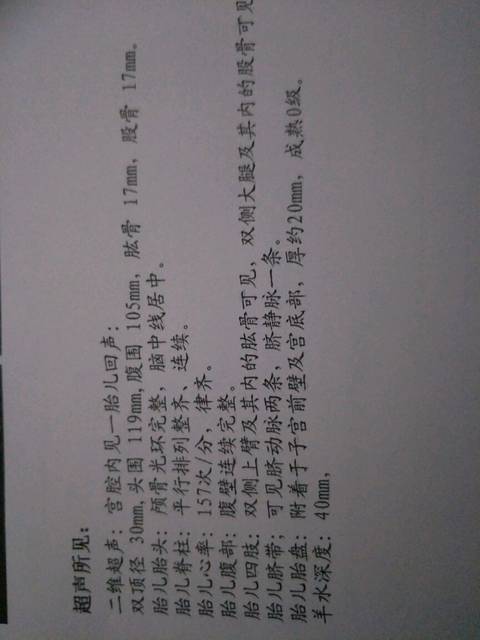 超声所见:
二维超声: 宫腔内见一胎儿回声:
双顶径 30mm,头围 119mm,腹围 105mm, 肱骨 17mm, 股骨 17mm。
胎儿胎头: 颅骨光环完整, 脑中线居中。
胎儿脊柱: 平行排列整齐、连续。
胎儿心率: 157次/分, 律齐。
胎儿腹部: 腹壁连续完整。
胎儿四肢: 双侧上臂及其内的肱骨可见, 双侧大腿及其内的股骨可见
胎儿脐带; 可见脐动脉两条, 脐静脉一条。
胎儿胎盘: 附着于子宫前壁及宫底部, 厚约20mm, 成熟0级。
羊水深度: 40mm,